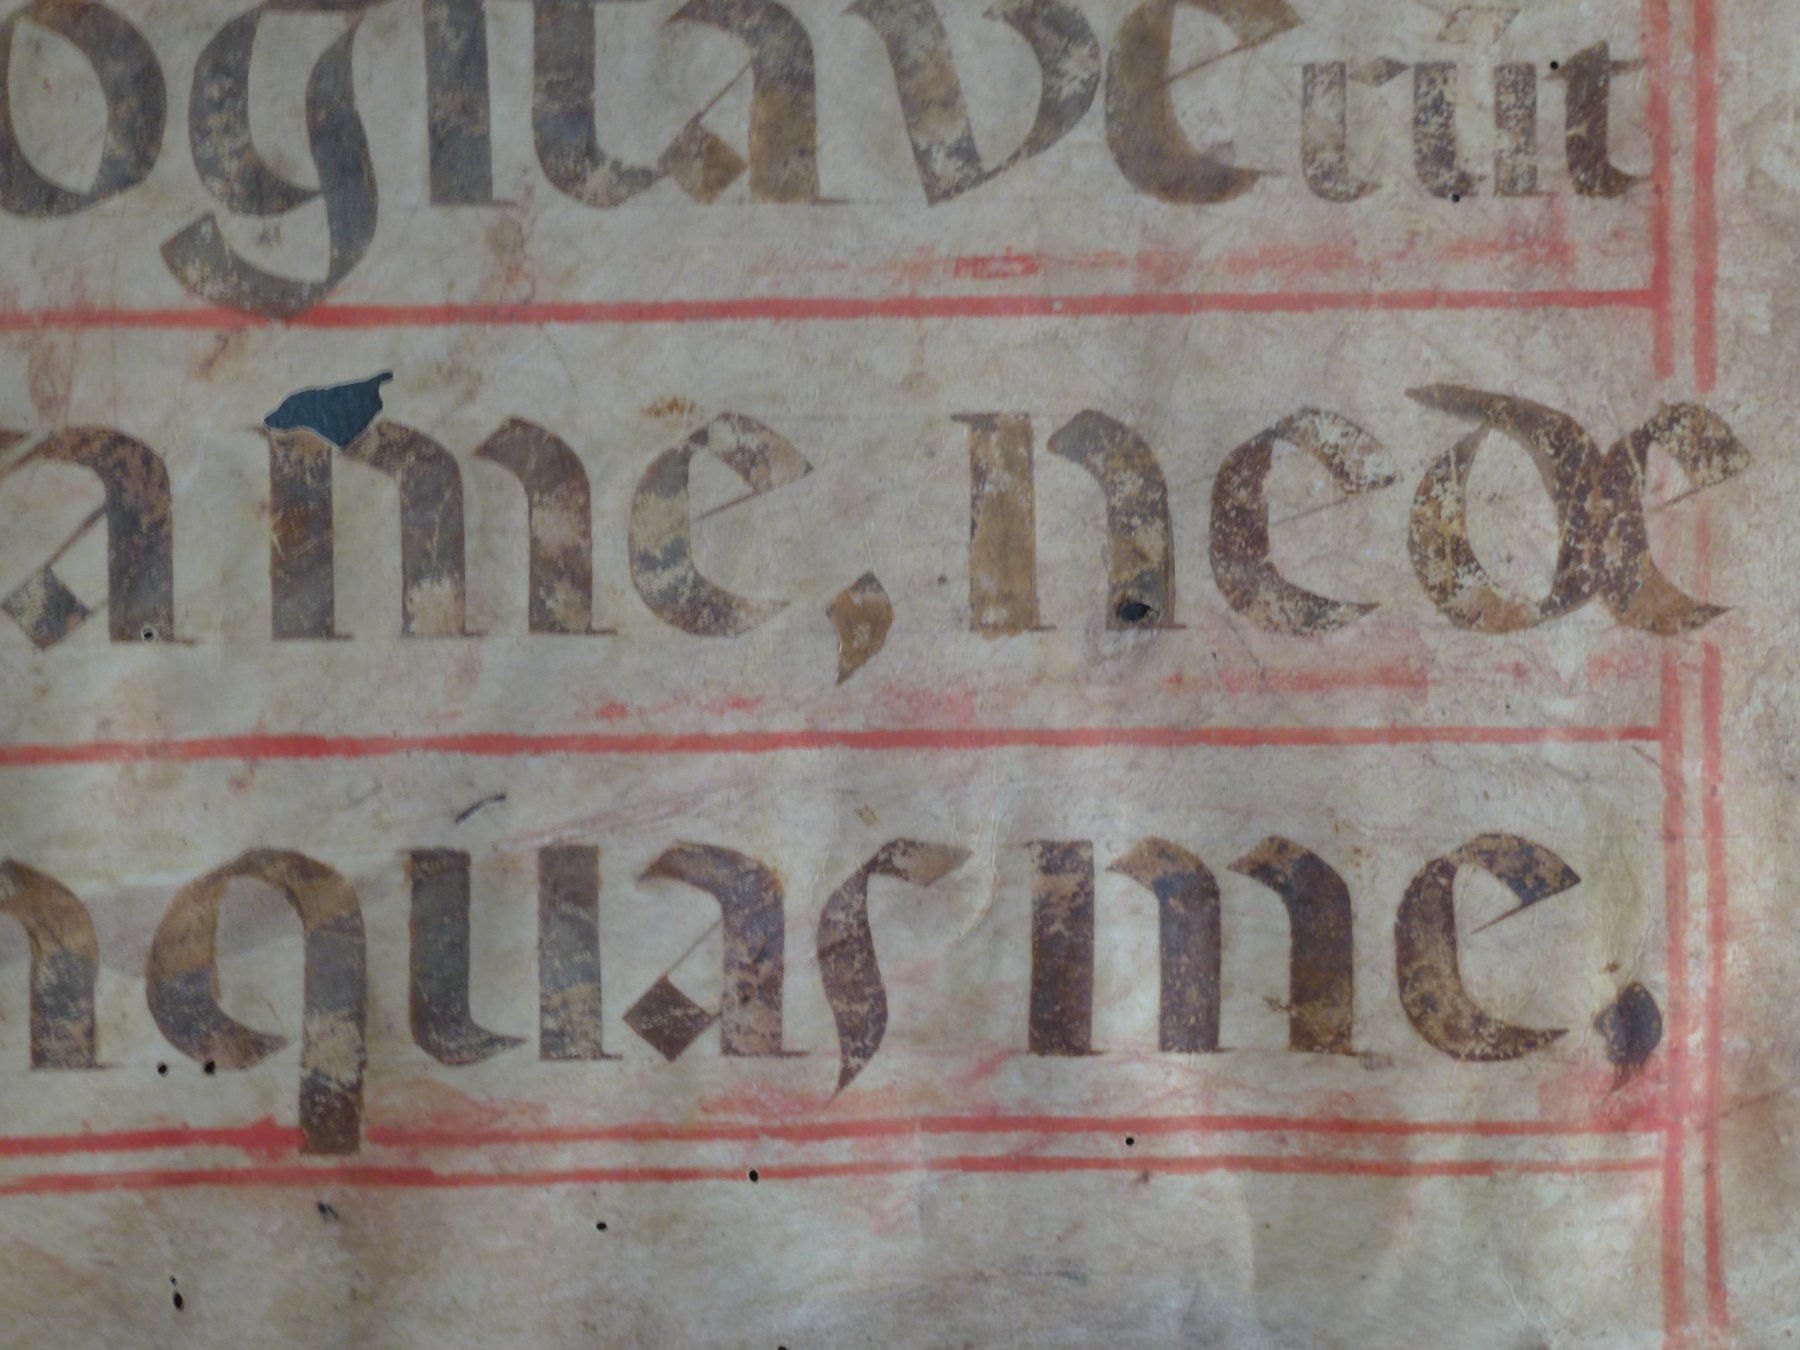 ogitaverūt
a me, ne de
nquas me,